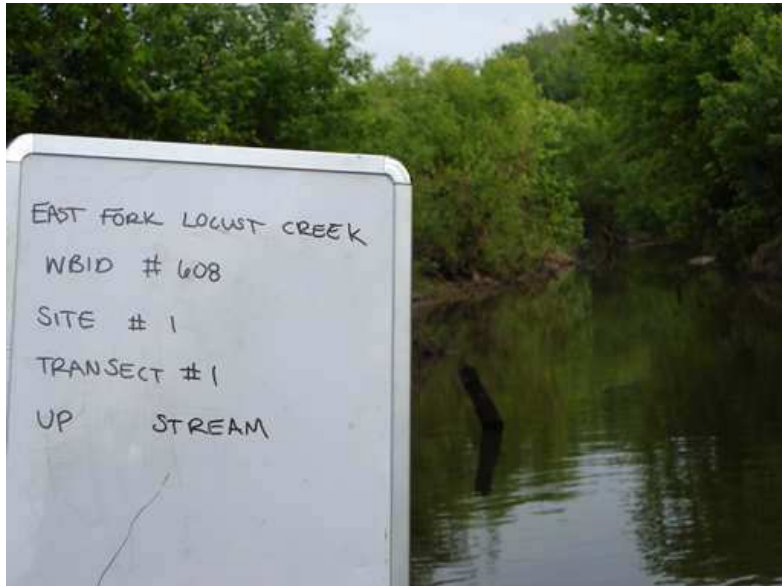 EAST FORK LOCUST CREEK
WBID # 608
SITE # 1
TRANSECT #1
UP STREAM